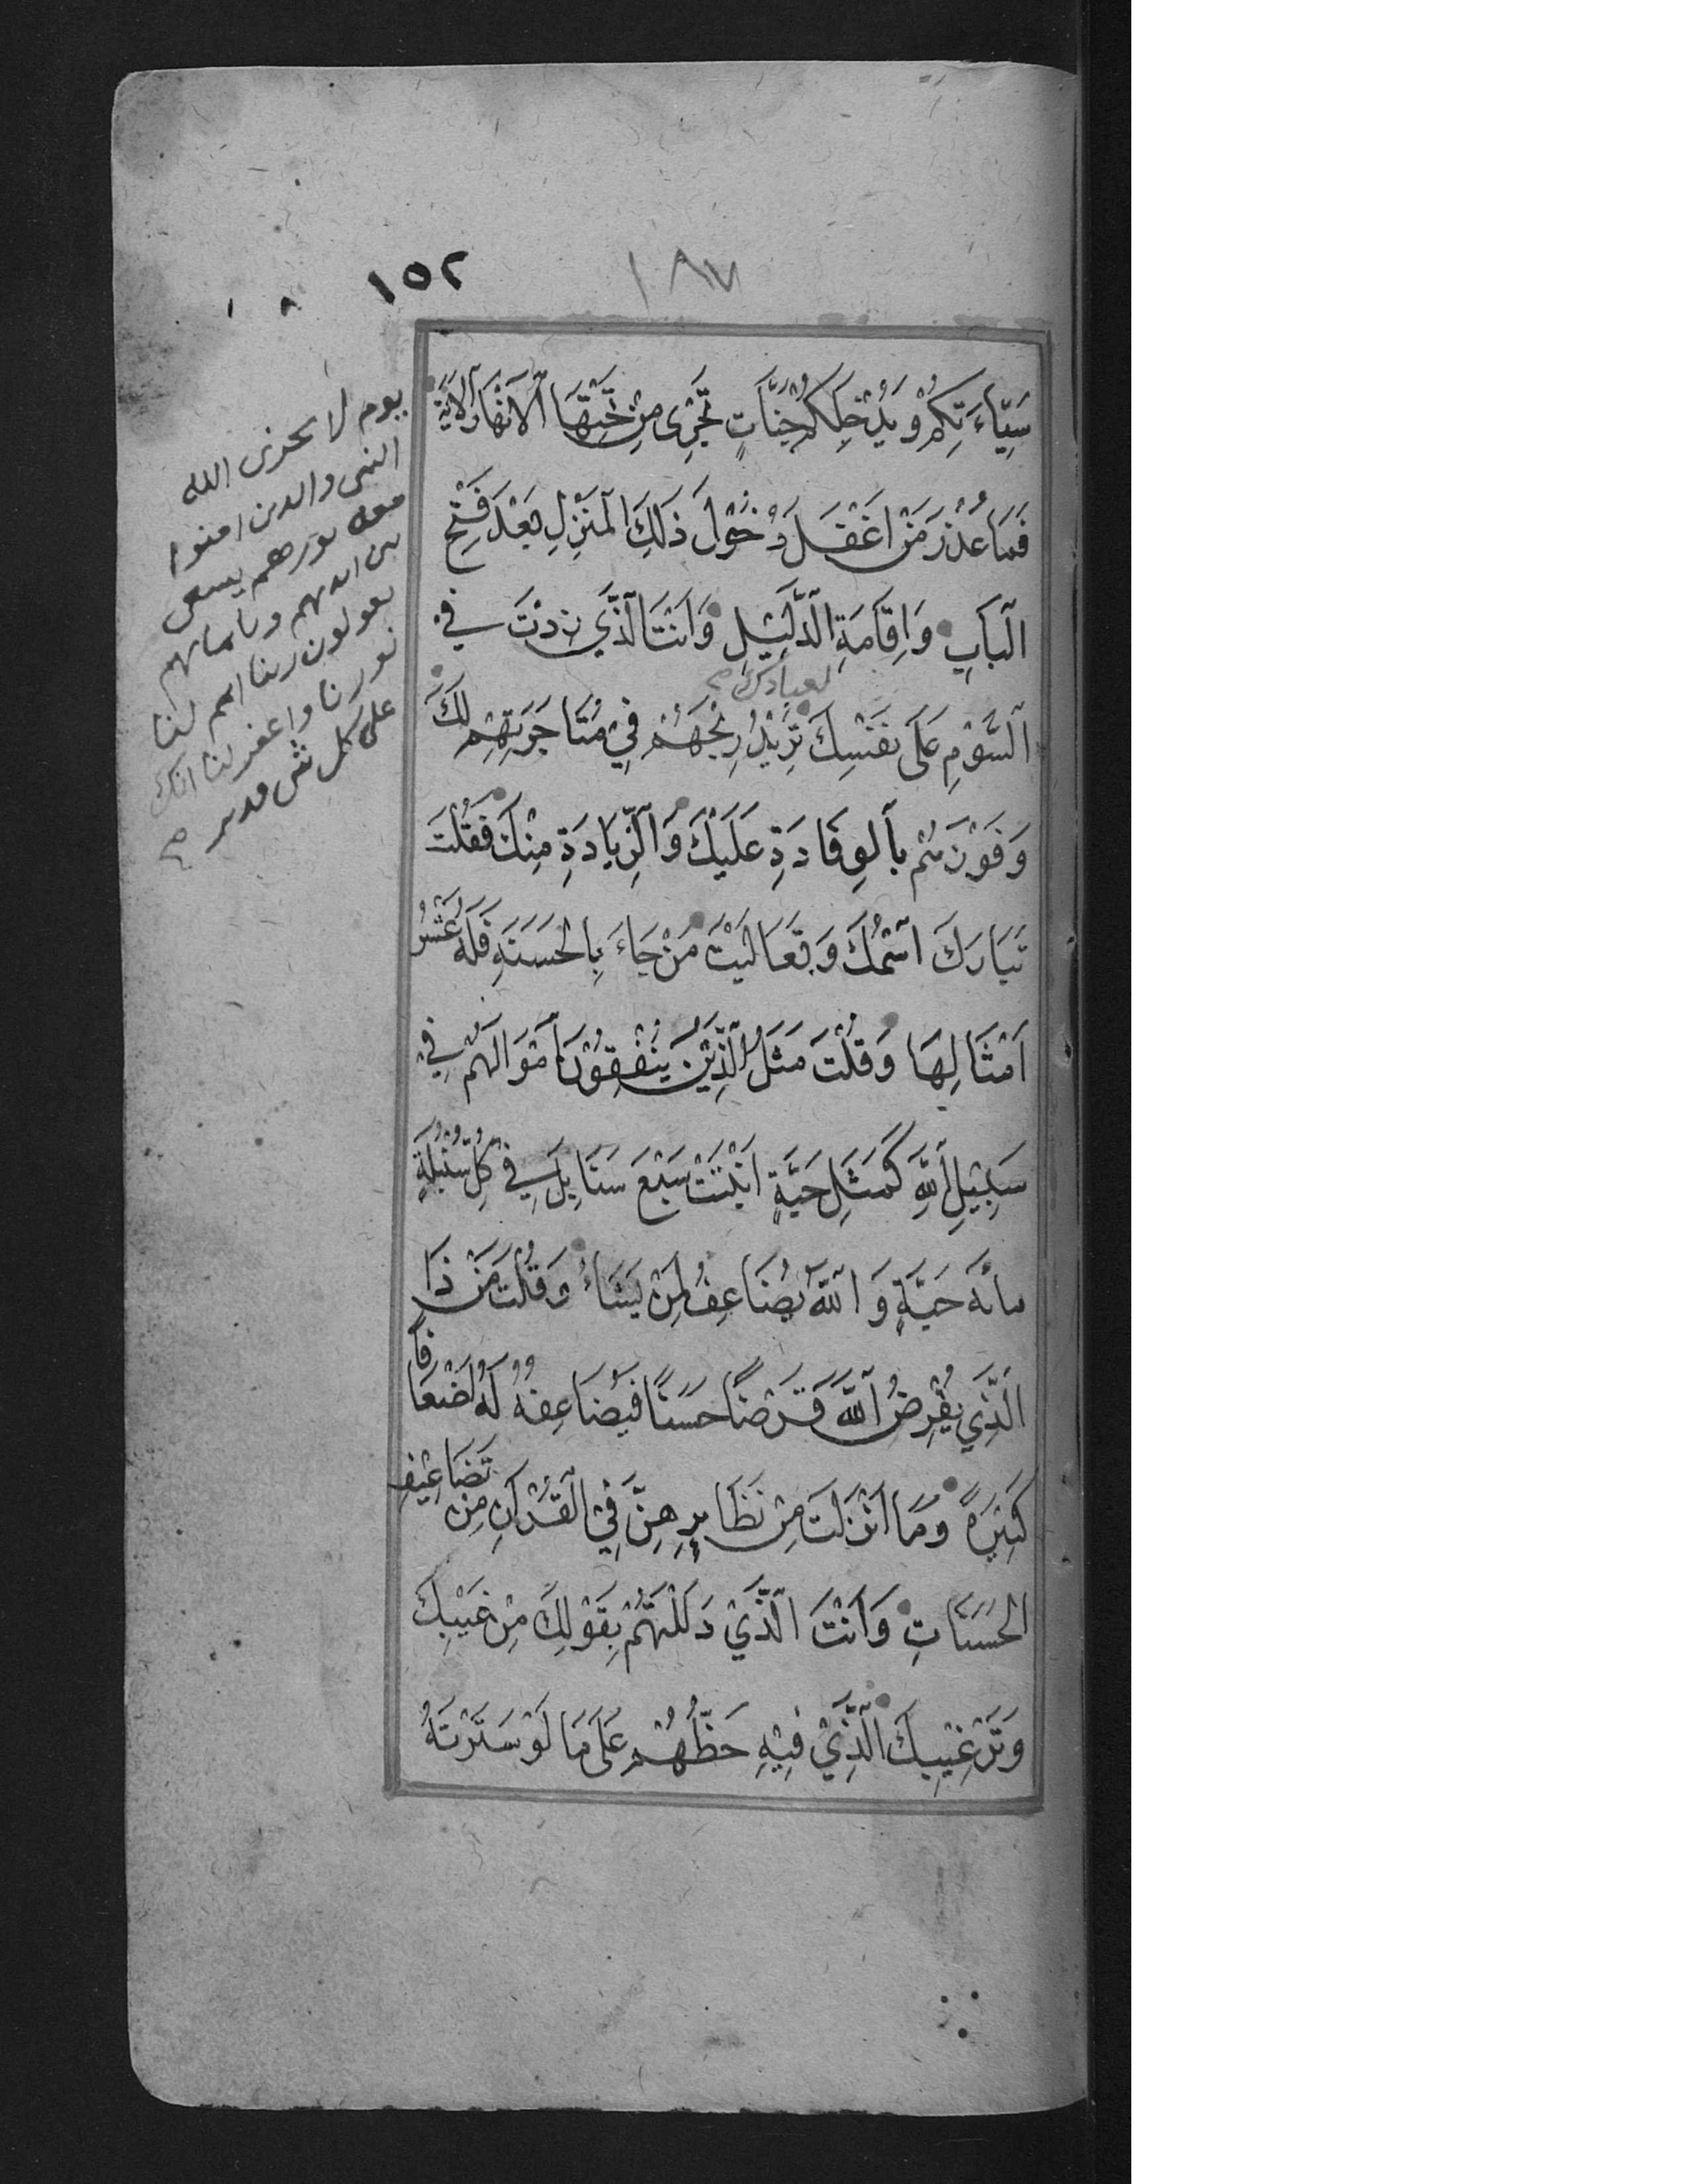 ١٥٢
١٨٧
سَيِّاٰتِكُمْ وَيُدْخِلَكُمْ جَنَّاتٍ تَجْرِى مِنْ تَحْتِهَا الْاَنْهَارُ الْاٰيَةَ
فَمَا عُذْرُ مَنْ اَغْفَلَ دُخُوْلَ ذٰلِكَ الْمَنْزِلِ بَعْدَ فَتْحِ
الْبَابِ وَاِقَامَةِ الدَّلِيْلِ وَاَنْتَ الَّذِي زِدْتَ فِي
السَّوْمِ عَلَى نَفْسِكَ لعبادك تُرِيْدُ رِبْحَهُمْ فِيْ مُتَاجَرَتِهِمْ لَكَ
وَفَوْزَهُمْ بِالْوِفَادَةِ عَلَيْكَ وَالزِّيَادَةِ مِنْكَ فَقُلْتَ
تَبَارَكَ اسْمُكَ وَتَعَالَيْتَ مَنْ جَاءَ بِالْحَسَنَةِ فَلَهُ عَشْرُ
اَمْثَالِهَا وَقُلْتَ مَثَلُ الَّذِيْنَ يُنْفِقُوْنَ اَمْوَالَهُمْ فِي
سَبِيْلِ اللّٰهِ كَمَثَلِ حَبَّةٍ اَنْبَتَتْ سَبْعَ سَنَابِلَ فِي كُلِّ سُنْبُلَةٍ
مائة حَبَّةٍ وَاللّٰهُ يُضَاعِفُ لِمَنْ يَشَاءُ وَقُلْتَ مَنْ ذَا
الَّذِي يُقْرِضُ اللّٰهَ قَرْضًا حَسَنًا فَيُضَاعِفَهُ لَهُ اَضْعَافًا
كَثِيْرَةً وَمَا اَنْزَلْتَ مِنْ نَظَايِرِهِنَّ فِي الْقُرْاٰنِ مِنْ تَضَاعِيْفِ
الْحَسَنَاتِ وَاَنْتَ الَّذِيْ دَلَلْتَهُمْ بِقَوْلِكَ مِنْ غَيْبِكَ
وَتَرْغِيْبِكَ الَّذِيْ فِيْهِ حَظُّهُمْ عَلَى مَا لَوْ سَتَرْتَهُ
يوم لا يخزى الله
النبى والذين امنوا
معه نورهم يسعى
بين ايديهم وبايمانهم
يقولون ربنا اتمم لنا
نورنا واغفر لنا انك
على كل شى قدير